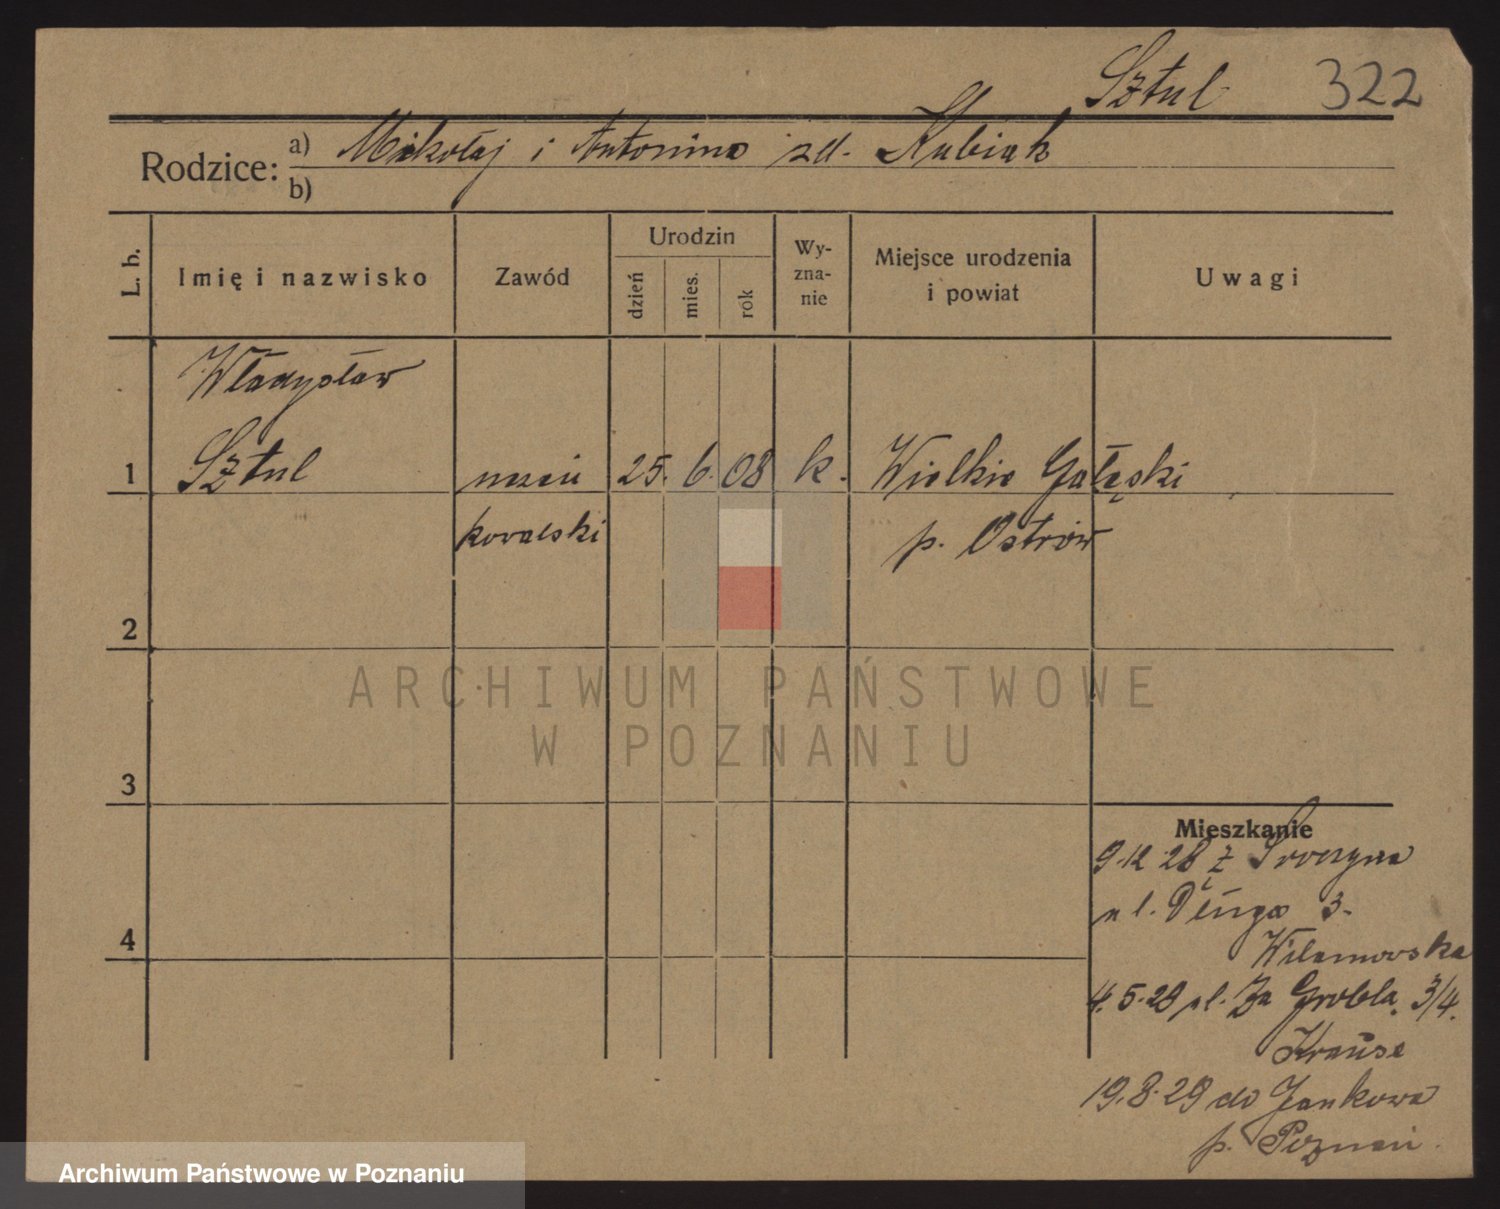 Sztul 322
Rodzice: a) Mikołaj i Antonina zd. Kubiak
b)
L. b. Imię i nazwisko Zawód Urodzin dzień mies. rok Wyznanie Miejsce urodzenia i powiat Uwagi
Władysław
1 Sztul uczeń 25. 6. 08 k. Wielkie Gałąski
kowalski p. Ostrów
2
ARCHIWUM PAŃSTWOWE
W POZNANIU
3
Mieszkanie
9.12 28 z
ul. Długa 3.
4
Wilamowska
4.5.29 ul. Za Groblą 3/4.
Krause
19.8.29 do Jankowa
p. Poznań.
Archiwum Państwowe w Poznaniu